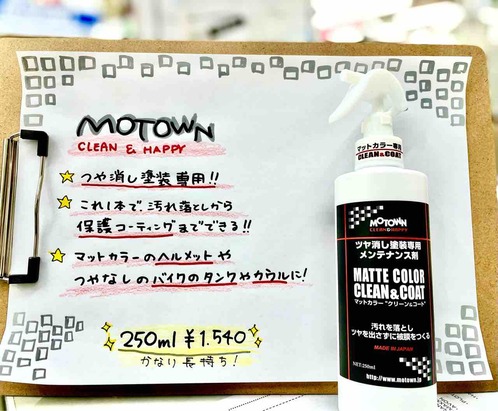 MOTOWN
CLEAN & HAPPY
つや消し塗装専用!!
これ1本で、汚れ落としから
保護コーティングまでできる!!
マットカラーのヘルメットや
つやなしのバイクのタンクやカウルに!
250ml ¥1.540
かなり長持ち!
マットカラー専用
CLEAN&COAT
MOTOWN
CLEAN & HAPPY
ツヤ消し塗装専用
メンテナンス剤
MATTE COLOR
CLEAN&COAT
マットカラー"クリーン&コート"
汚れを落とし
ツヤを出さずに被膜をつくる
MADE IN JAPAN
NET.250ml
http://www.motown.jp